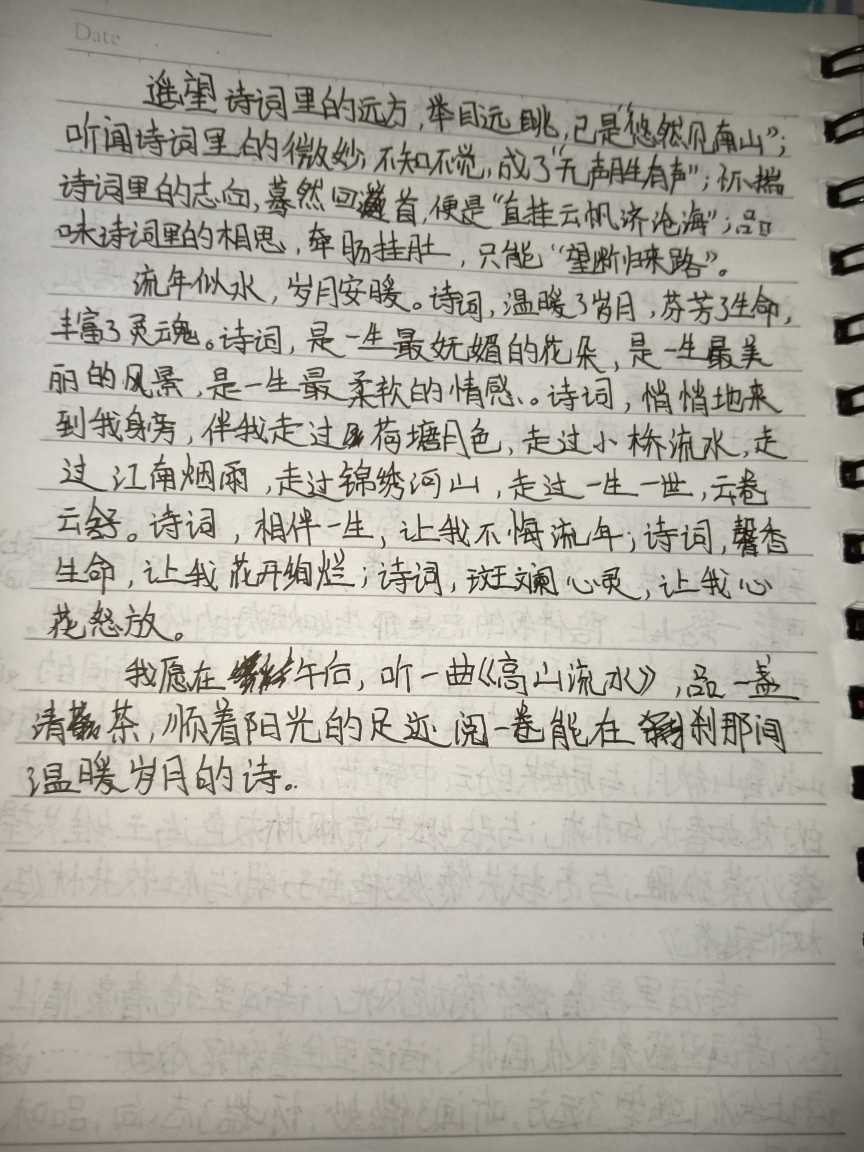 Date
遥望诗词里的远方，举目远眺，已是“悠然见南山”；
听闻诗词里的微妙，不知不觉，成了“无声胜有声”；怀揣
诗词里的志向，蓦然回首，便是“直挂云帆济沧海”；品
味诗词里的相思，牵肠挂肚，只能“望断归来路”。
流年似水，岁月安暖。诗词，温暖了岁月，芬芳了生命，
丰富了灵魂。诗词，是一生最妩媚的花朵，是一生最美
丽的风景，是一生最柔软的情感。诗词，悄悄地来
到我身旁，伴我走过荷塘月色，走过小桥流水，走
过江南烟雨，走过锦绣河山，走过一生一世，云卷
云舒。诗词，相伴一生，让我不悔流年；诗词，馨香
生命，让我花开绚烂；诗词，斑斓心灵，让我心
花怒放。
我愿在午后，听一曲《高山流水》，品一盏
清茶，顺着阳光的足迹阅一卷能在刹那间
温暖岁月的诗。